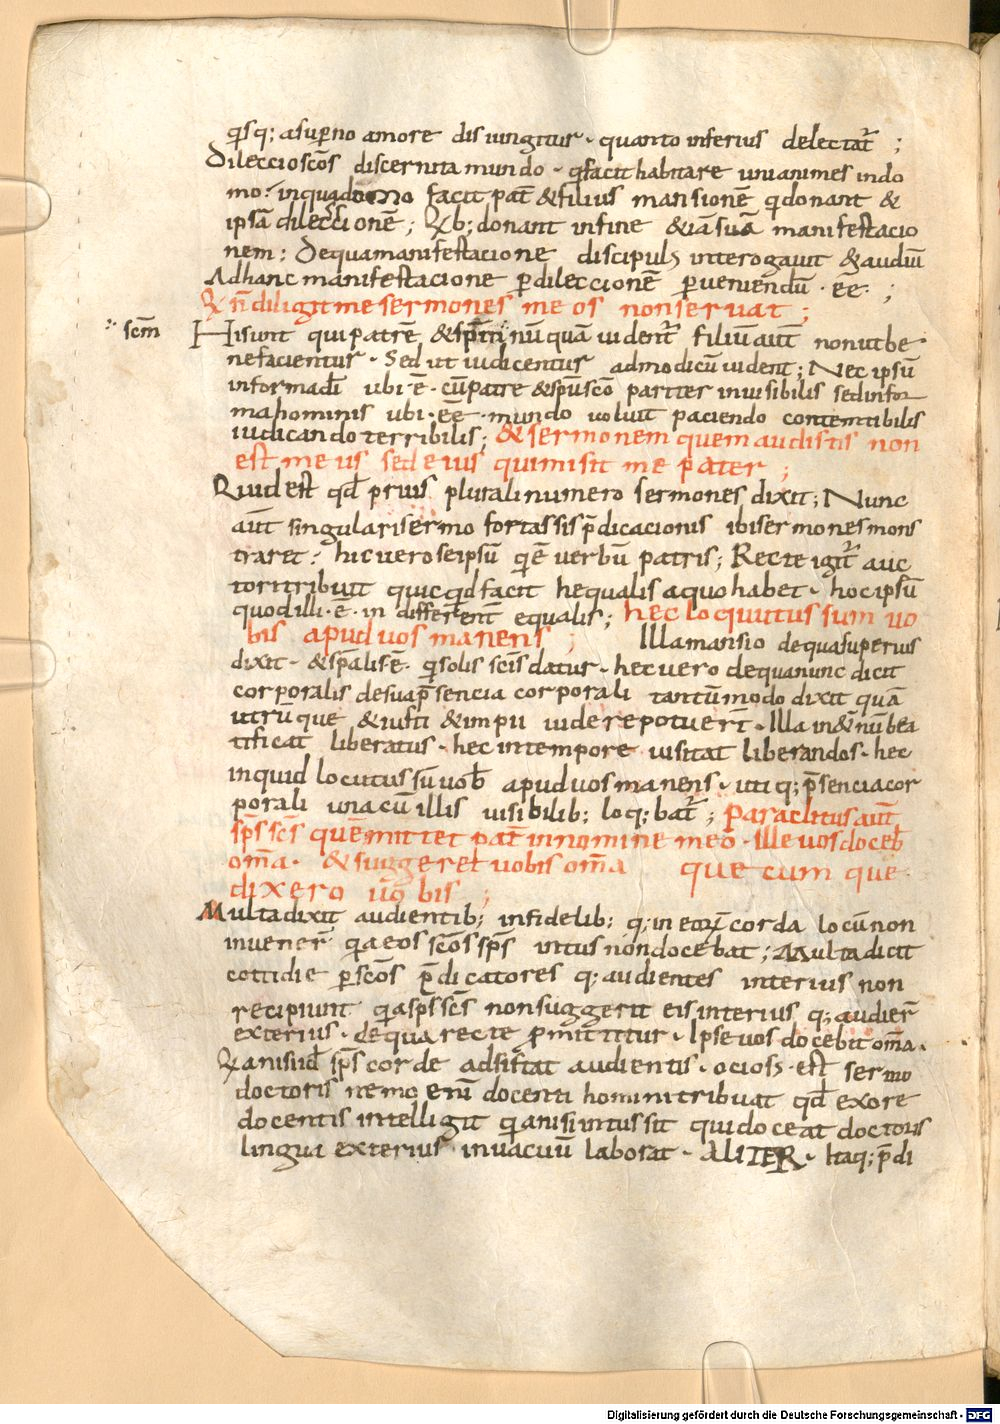 q̄sq; asup̄no amore disiungitur · quanto inferius delectat̄ ;
Dileccio sc̄os discernit a mundo · q̄ facit habitare unianimes indo
mo: inqua domo facit pat̄ & filius mansionē q̄ donant &
ipsā dileccionē ; Q̄b; donant infine & iā suā manifestacio
nem : Dequa manifestacione discipuls interogauit & audiuī
Ad hanc manifestacione p̄ dileccionē p̄ueniendū · eē · ;
Q̄ n̄ diligit me sermones meos non seruat ;
scm̄ Hi sunt qui patrē & sp̄m nūquā uident̄ filiū aut̄ non ut be
neficientur · Sed ut iudicentur ad modicū uident ; Nec ipsū
in forma dī ubi ē · cū patre & sp̄u sc̄o pariter inuisibilis sed in for
ma hominis ubi · eē · mundo uoluit paciendo contemtibilis
iudicando terribilis ; & sermonem quem audistis non
est meus sed eius qui misit me pater ;
Quid est qd̄ prius plurali numero sermones dixit ; Nunc
aut̄ singulari sermo fortassis p̄dicacionis ibi sermones mons
traret : hic uero seipsū q̄ ē uerbū patris ; Recte igit̄ auc
tori tribuit quicqd̄ facit he qualis a quo habet · hoc ipsū
quod illi · ē · in differenт̄ equalis ; hec loquutus sum uo
bis apud uos manens ; Illa mansio de qua superius
dixit · & sp̄alis ē · q̄ solis sc̄is datur · hec uero de qua nunc dicit
corporalis de sua p̄sencia corporali tantūmodo dixit quā
utrūque & iusti & impii uidere potuer̄t · Illa in &n̄ū bea
tificat liberatus · hec in tempore uisitat liberandos · hec
inquid locutus sū uob̄ apud uos manens · utiq; p̄sencia cor
porali una cū illis uisibilib; loq; bat̄ ; Paraclitus aut̄
sp̄s sc̄s quē mittet pat̄ in nomine meo · Ille uos doceb̄
om̄a · & suggeret uobis om̄a que cum que
dixero uobis ;
Multa dixit audientib; infidelib; q; in eoꝝ corda locū non
inuener̄ q̄a eos sc̄os sp̄s intus non docebat ; Multa dicit
cottidie p̄ sc̄os p̄dicatores q; audientes interius non
recipiunt q̄a sp̄s sc̄s non suggerit eis interius q; audier̄
exterius · de qua recte p̄mittitur · Ipse uos docebit om̄a ·
Q̄a nisi id̄ sp̄s corde adsistat audientis · ocioss · est sermo
doctoris nemo enī docenti homini tribuat qd̄ ex ore
docentis intelligit q̄ia nisi intus sit qui doceat doctoris
lingua exterius in uacuū laborat · ALITER · Itaq; p̄di
Digitalisierung gefördert durch die Deutsche Forschungsgemeinschaft - DFG